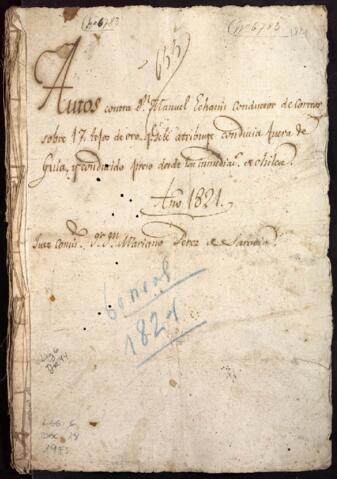 (nº 6783
(nº 6783
1821
655
Autos contra Dn. Manuel Echavi conductor de Correos
sobre 17 tejos de oro, q. se le atribuye conducia fuera de
Guia, y conducido preso desde las inmediac. de chilca.
Año 1821.
Juez Comis. Mariano Perez de Saravia.
1821
Leg 6
Doc 14
Leg. 6
Doc. 18